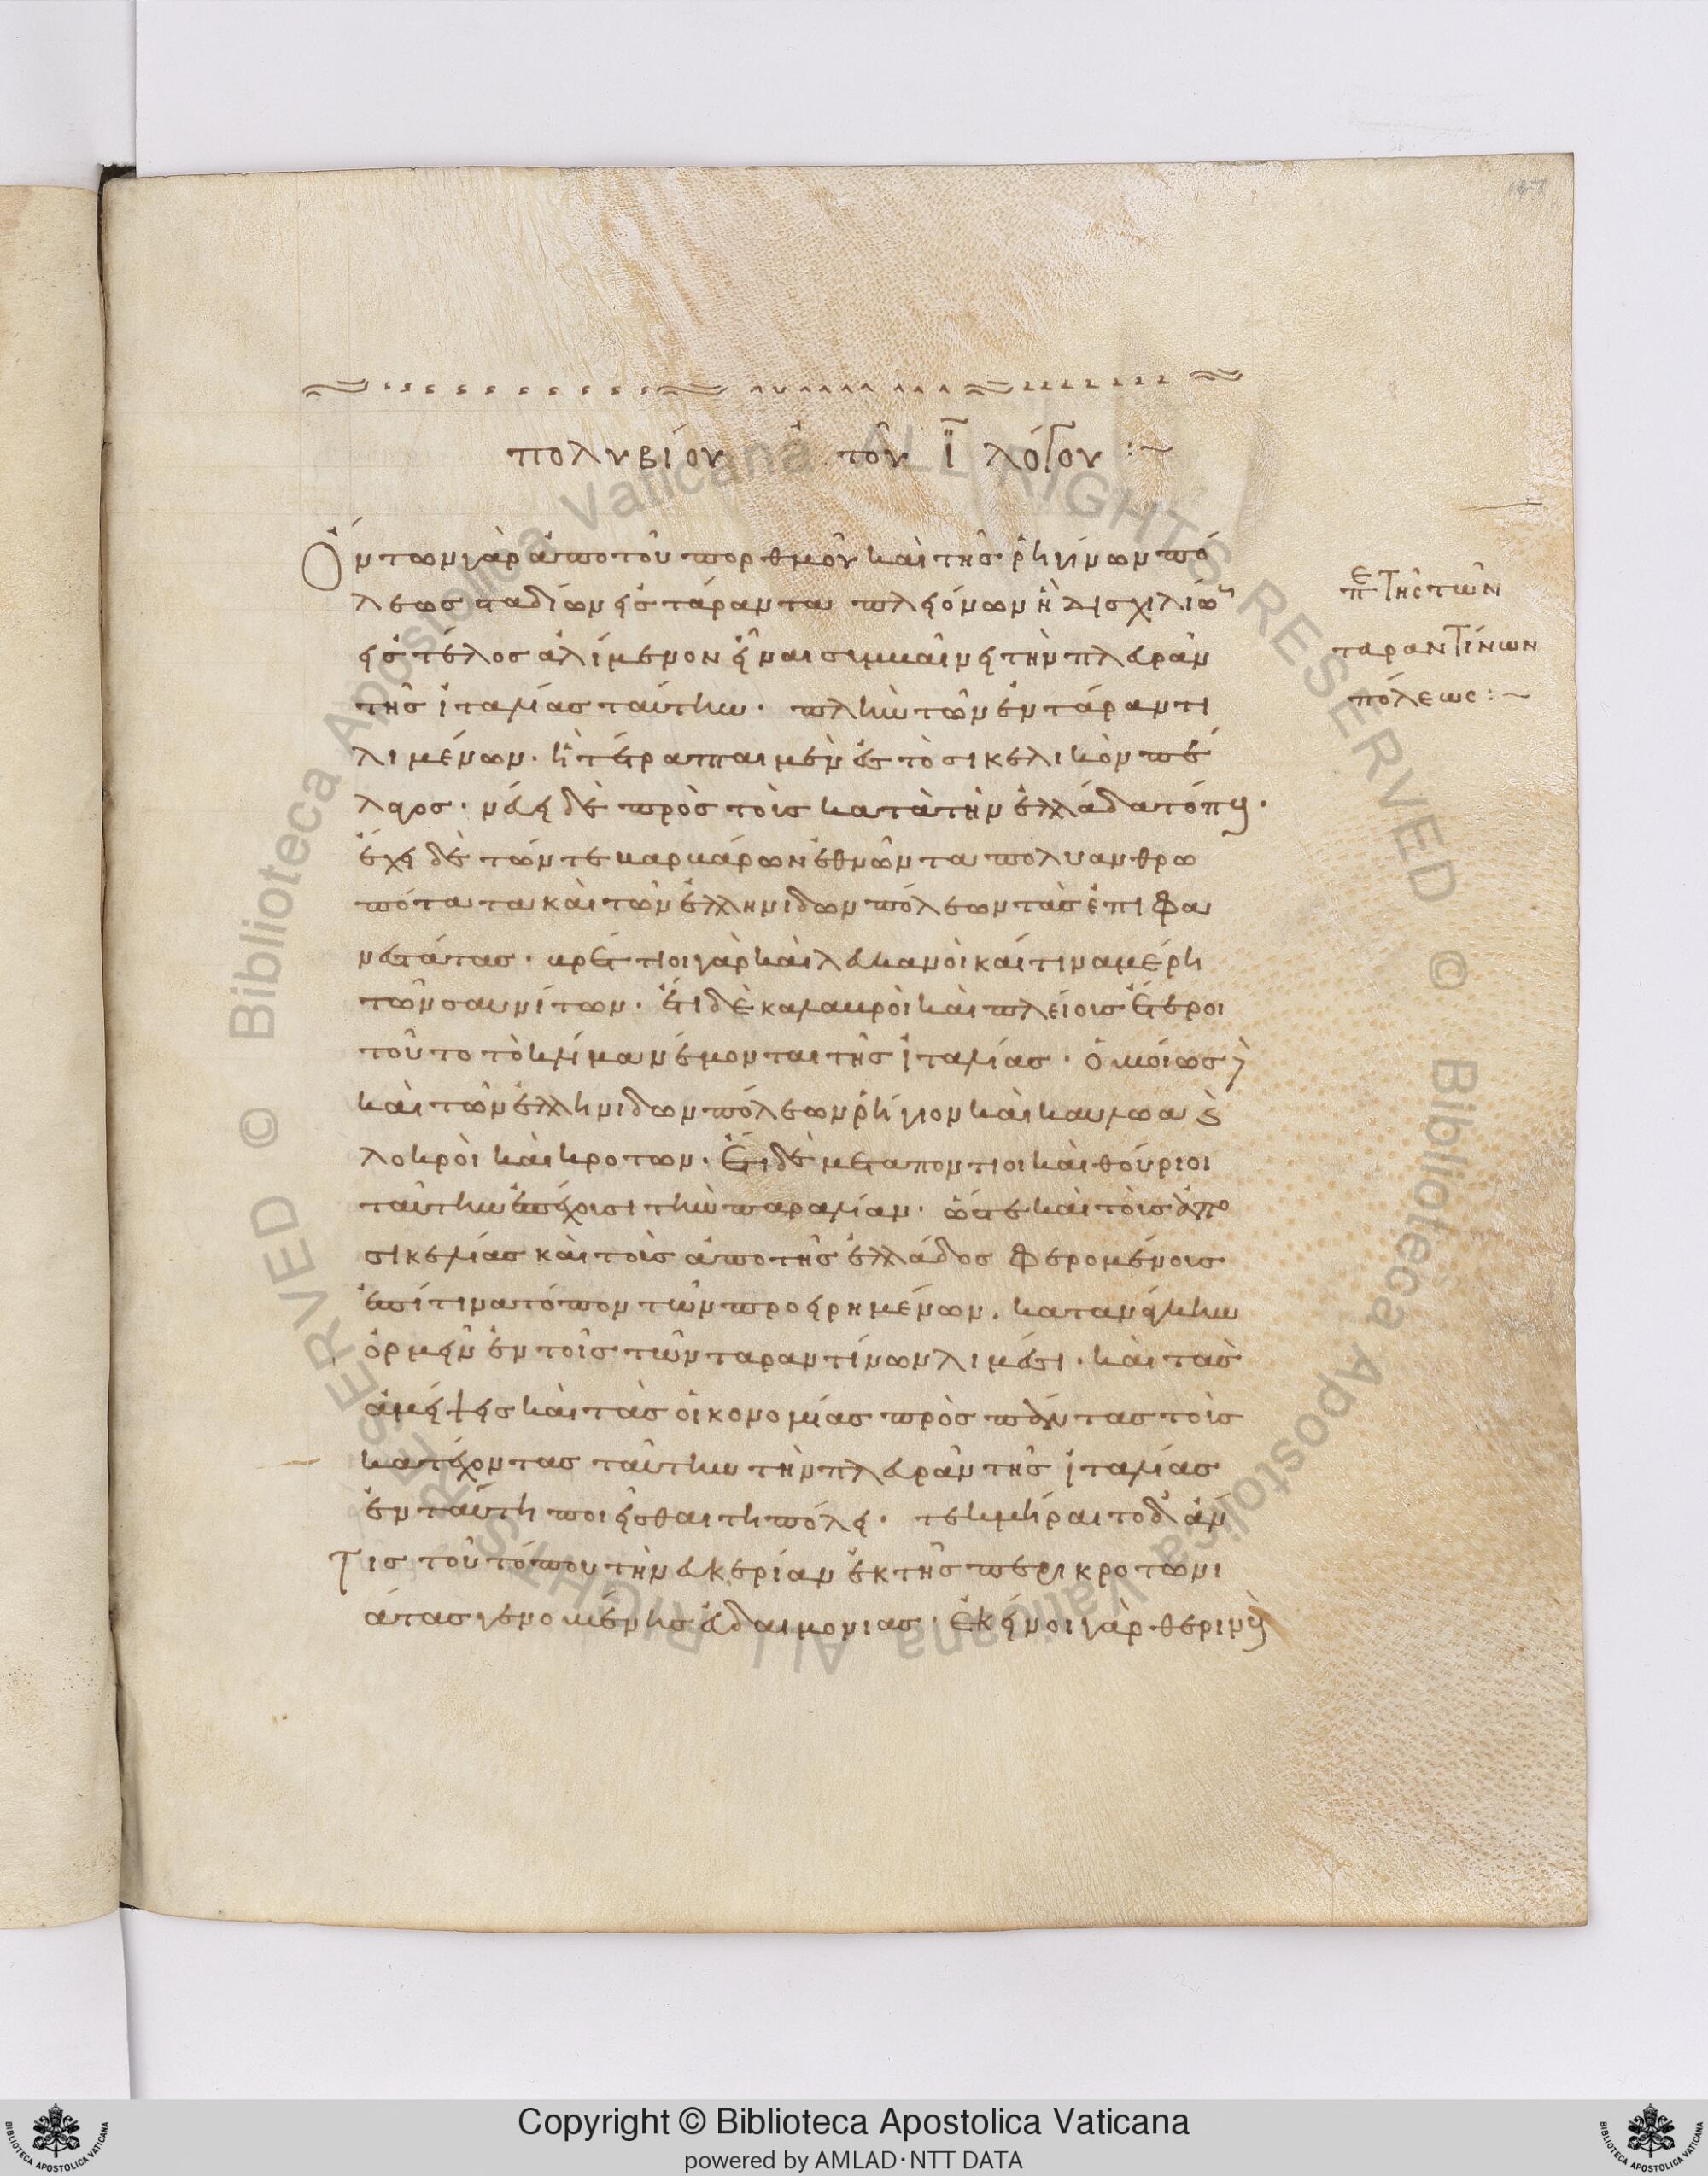 πολυβίου ἐκ τοῦ ῑ λόγου :~
Ὄντων γὰρ ἀπὸ τοῦ πορθμοῦ καὶ τῆς ῥηγίνων πό
λεως σταδίων εἰς τάραντα πλειόνων ἢ δισχιλίων
εἰς τέλος ἀλίμενον εἶναι συμβαίνει τὴν πλευρὰν
τῆς ἰταλίας ταύτην· πλὴν τῶν ἐν τάραντι
λιμένων· ἣ τέτραπται μὲν εἰς τὸ σικελικὸν πέ
λαγος· νεύει δὲ πρὸς τοῖς κατὰ τὴν ἑλλάδα τόποις·
ἔχει δὲ τῶν τε βαρβάρων ἐθνῶν τὰ πολυανθρω
πότατα καὶ τῶν ἑλληνίδων πόλεων τὰς ἐπιφα
νεστάτας· βρέττιοι γὰρ καὶ λευκανοὶ καί τινα μέρη
τῶν σαυνίτων· ἔτι δὲ καλαβροὶ καὶ πλείους ἕτεροι
τοῦτο τὸ κλίμα νέμονται τῆς ἰταλίας· ὁμοίως δὲ
καὶ τῶν ἑλληνίδων πόλεων ῥήγιον καὶ καυλωα καὶ
λοκροὶ καὶ κροτων· ἔτι δὲ μεταποντιοι καὶ θούριοι
ταύτην ἐπέχουσι τὴν παραλίαν· ὥστε καὶ τοῖς ἀπὸ
σικελίας καὶ τοῖς ἀπὸ τῆς ἑλλάδος φερομένοις
ἐπί τινα τόπον τῶν προειρημένων· κατ' ἀνάγκην
ὁρμεῖν ἐν τοῖς τῶν ταραντίνων λιμέσι· καὶ τὰς
ἀμείψεις καὶ τὰς οἰκονομίας πρὸς πάντας τοὺς
κατέχοντας ταύτην τὴν πλευρὰν τῆς ἰταλίας
ἐν ταύτῃ ποιεῖσθαι τῇ πόλει· τεκμήραιτο δ' ἄν
τις τοῦ τόπου τὴν εὐκερίαν ἐκ τῆς περὶ κροτωνι
άτας γενομένης εὐδαιμονίας· ἐκεῖνοι γὰρ θερινοὺς
περὶ τῆς τῶν
ταραντίνων
πόλεως :~
Copyright © Biblioteca Apostolica Vaticana
powered by AMLAD·NTT DATA
© Biblioteca Apostolica Vaticana ALL RIGHTS RESERVED © Biblioteca Apostolica Vaticana ALL RIGHTS RESERVED